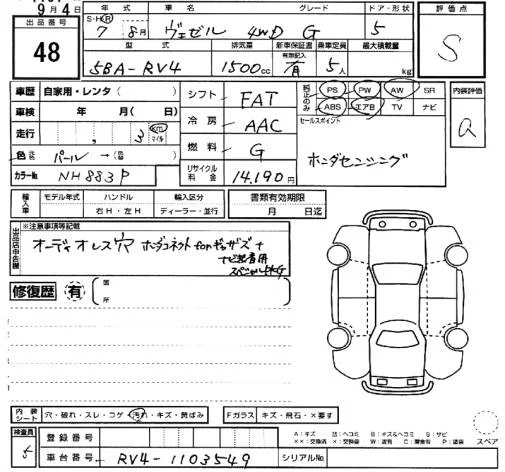 9月4
出品番号
48
年式 車名 グレード ドア・形状
S・H(R) 7年 8月 ヴェゼル 4WD G 5
型式 排気量 新車保証書 乗車定員 最大積載量
有無記入
5BA-RV4 1500cc 有 5人 kg
評価点
S
車歴 自家用・レンタ( )
車検 年 月( 日)
走行 , 3 km マイル
色 元色 パール →(色替 )
カラーNo NH883P
シフト FAT
冷房 AAC
燃料 G
リサイクル料金 14.190円
純正のみ PS PW AW SR
ABS エアB TV ナビ
セールスポイント
ホンダセンシング
内装評価
Q
輸入車 モデル年式 ハンドル 輸入区分
年 右H・左H ディーラー・並行
書類有効期限
月 日迄
出品店申告欄
※注意事項等記載
オーディオレス穴 ホンダコネクトforギャザズ+
ナビ装着用
スペシャルPKG
修復歴 有 箇所
内装シート 穴・破れ・スレ・コゲ・汚れ・キズ・黄ばみ
Fガラス キズ・飛石・×要す
検査員
登録番号
車台番号 RV4-1103549 シリアルNo.
A:キズ U:ヘコミ B:キズ&ヘコミ S:サビ
××:交換済 ×:交換要 W:波有 C:腐食有 P:塗装
スペア